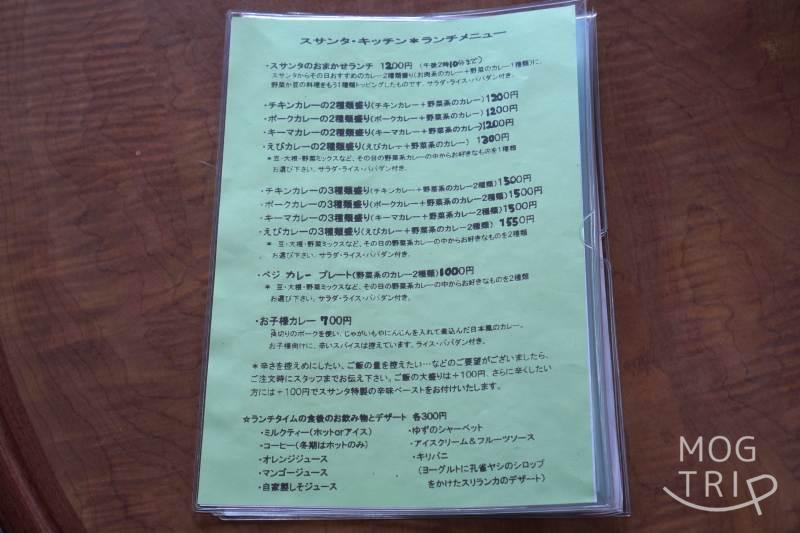 スサンタ・キッチン＊ランチメニュー
・スサンタのおまかせランチ 1200円 (午後2時10分まで)
スサンタからその日おすすめのカレー2種類盛り(お肉系のカレー+野菜のカレー1種類)に、
野菜か豆の料理をもう1種類トッピングしたものです。サラダ・ライス・パパダン付き。
・チキンカレーの2種類盛り(チキンカレー+野菜系のカレー) 1200円
・ポークカレーの2種類盛り(ポークカレー+野菜系のカレー) 1200円
・キーマカレーの2種類盛り(キーマカレー+野菜系のカレー) 1200円
・えびカレーの2種類盛り(えびカレー+野菜系のカレー) 1300円
＊豆・大根・野菜ミックスなど、その日の野菜系カレーの中からお好きなものを1種類
お選び下さい。サラダ・ライス・パパダン付き。
・チキンカレーの3種類盛り(チキンカレー+野菜系のカレー2種類)1500円
・ポークカレーの3種類盛り(ポークカレー+野菜系のカレー2種類)1500円
・キーマカレーの3種類盛り(キーマカレー+野菜系のカレー2種類)1500円
・えびカレーの3種類盛り(えびカレー+野菜系のカレー2種類) 1550円
＊ 豆・大根・野菜ミックスなど、その日の野菜系カレーの中からお好きなものを2種類
お選び下さい。サラダ・ライス・パパダン付き。
・ベジ カレー プレート(野菜系のカレー2種類)1000円
＊ 豆・大根・野菜ミックスなど、その日の野菜系カレーの中からお好きなものを2種類
お選び下さい。サラダ・ライス・パパダン付き。
・お子様カレー 700円
角切りのポークを使い、じゃがいもやにんじんを入れて煮込んだ日本風のカレー。
お子様向けに、辛いスパイスは控えています。ライス・パパダン付き。
＊辛さを控えめにしたい、ご飯の量を控えたい…などのご要望がございましたら、
ご注文時にスタッフまでお伝え下さい。ご飯の大盛りは+100円、さらに辛くしたい
方には+100円でスサンタ特製の辛味ペーストをお付けいたします。
☆ランチタイムの食後のお飲み物とデザート 各300円
・ミルクティー(ホットorアイス)
・コーヒー(冬期はホットのみ)
・オレンジジュース
・マンゴージュース
・自家製しそジュース
・ゆずのシャーベット
・アイスクリーム&フルーツソース
・キリパニ
(ヨーグルトに孔雀ヤシのシロップ
をかけたスリランカのデザート)
MOG
TRIP